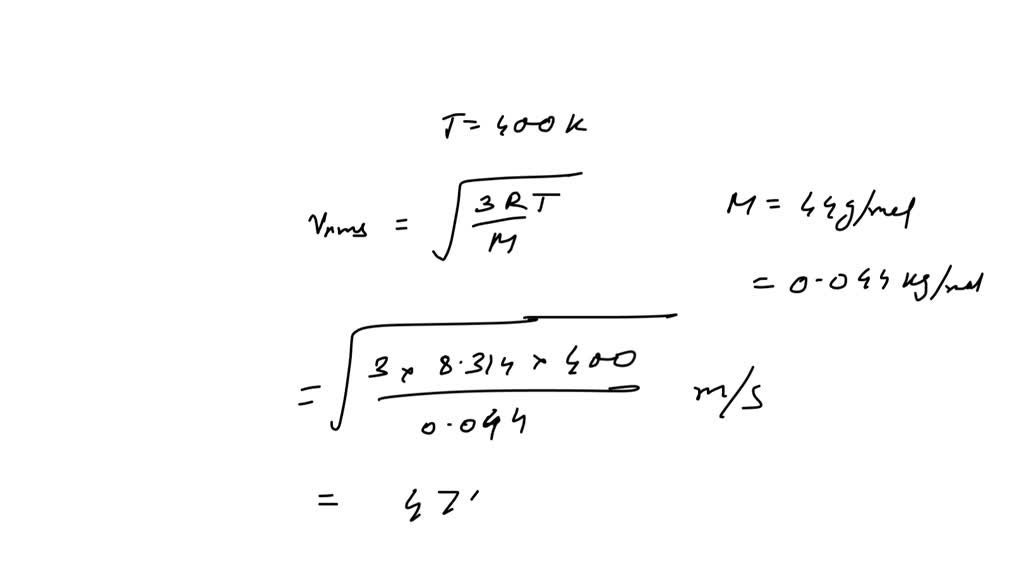 T = 400 K
Vrms = √(3RT/M)
M = 44 g/mol
= 0.044 kg/mol
= √(3 × 8.314 × 400 / 0.044) m/s
= 47